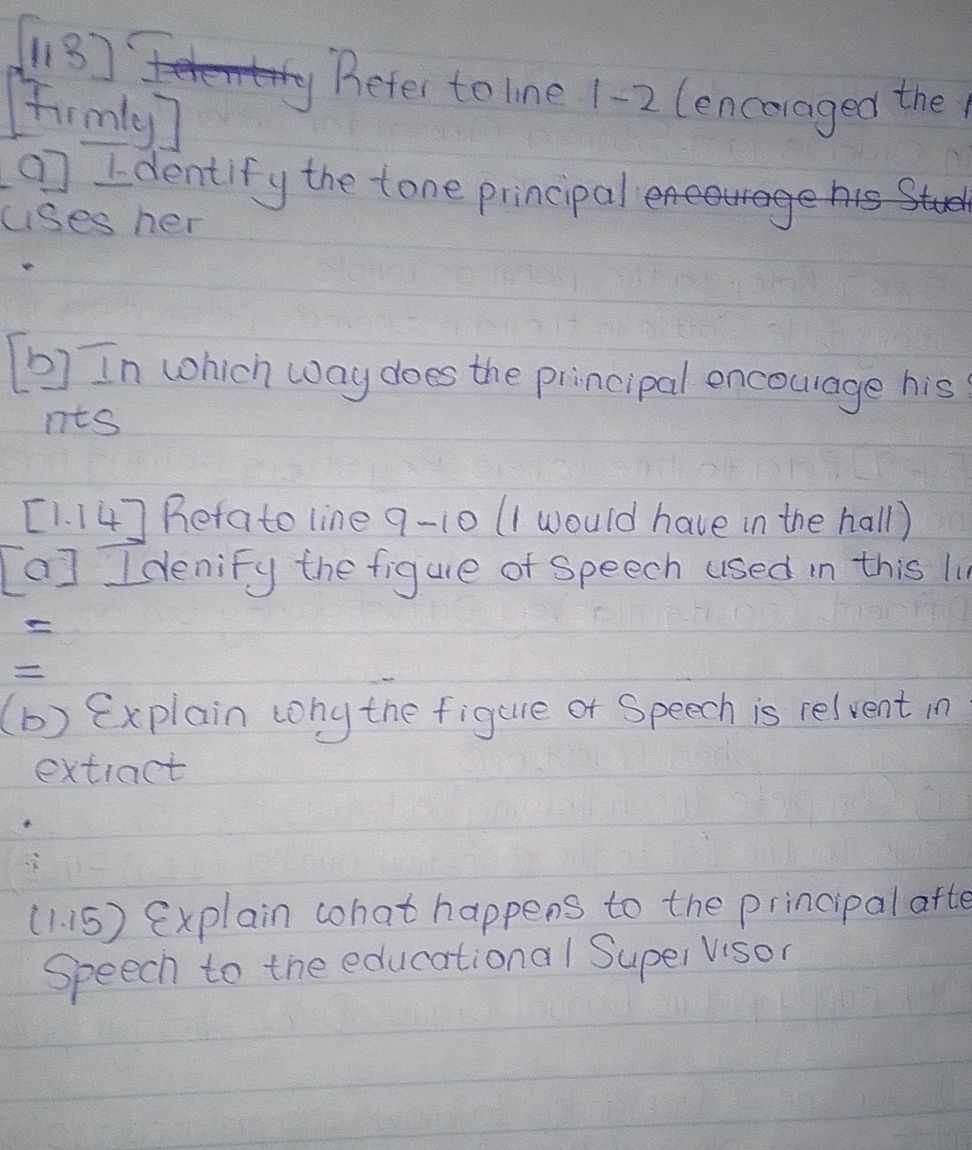 [1.13] Identity Refer to line 1-2 (encouraged the
[firmly]
[a] Identify the tone principal encourage his Stud
uses her
[b] In which way does the principal encourage his
nts
[1.14] Refa to line 9-10 (I would have in the hall)
[a] Idenify the figure of Speech used in this li
=
=
(b) Explain why the figure of Speech is relvent in
extract
(1.15) Explain what happens to the principal afte
Speech to the educational SuperVisor